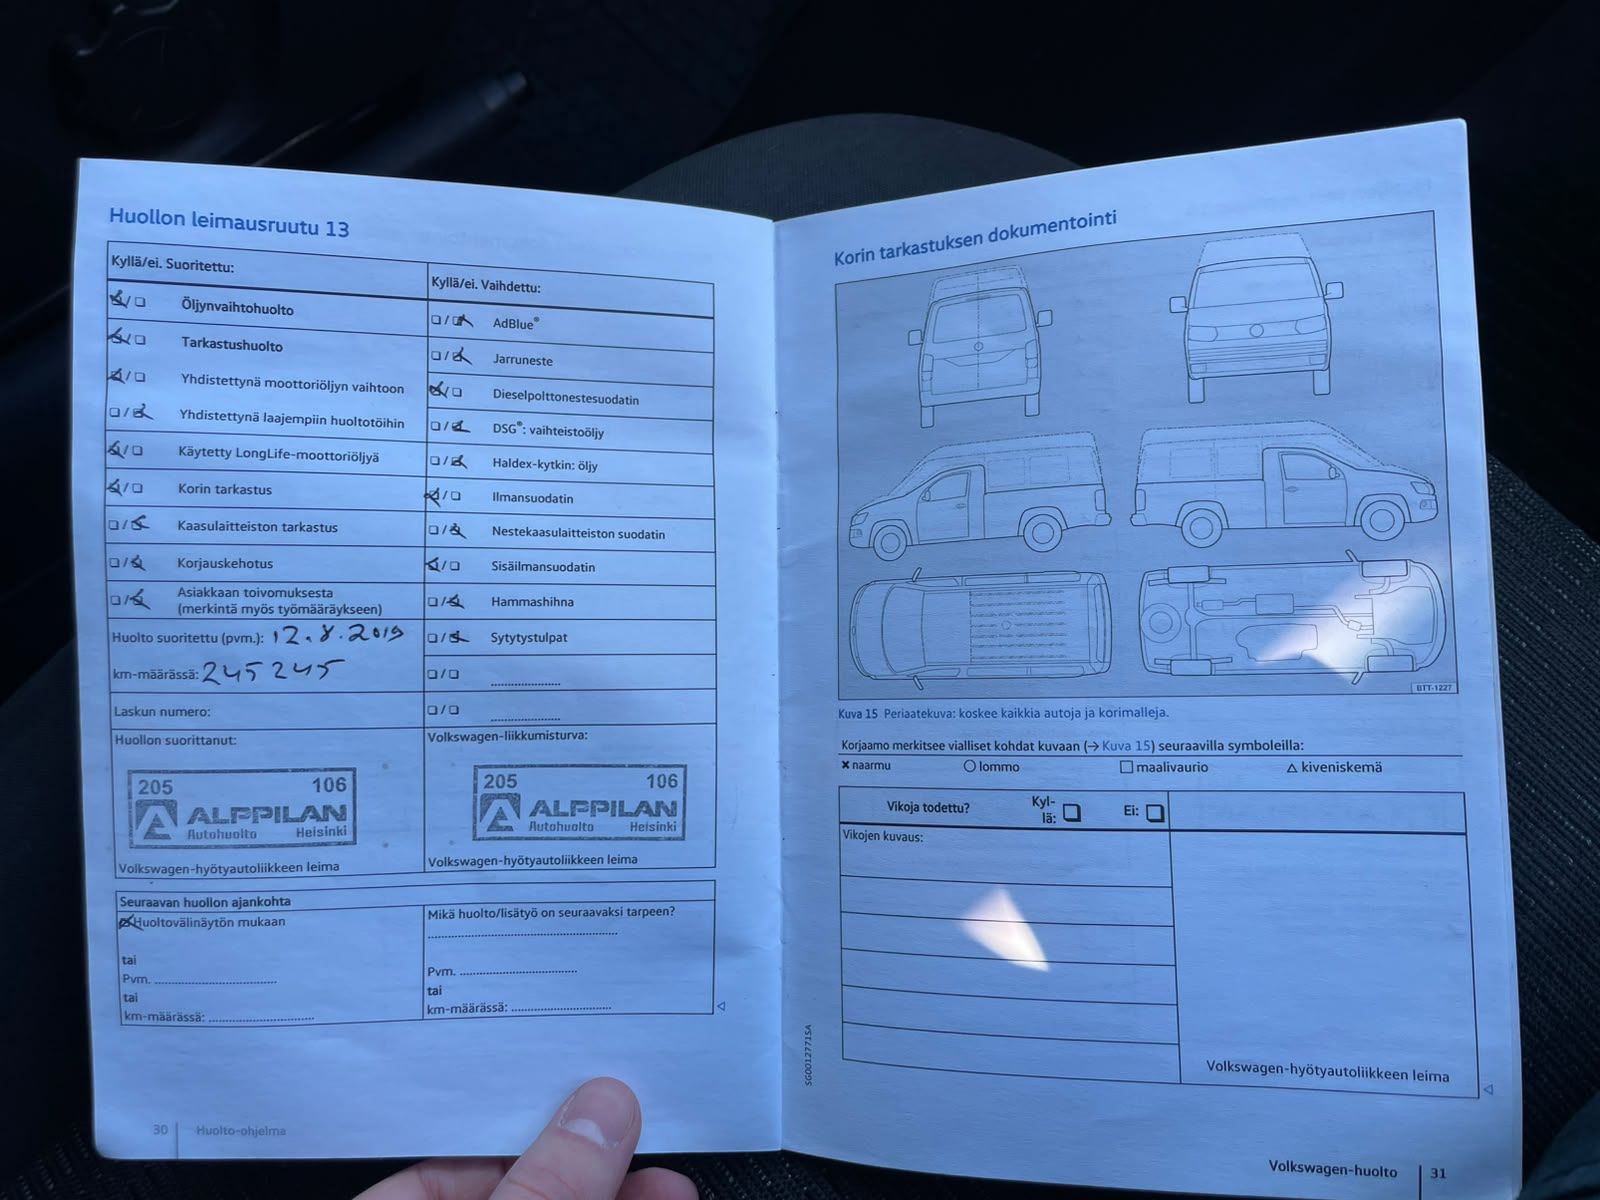 Huollon leimausruutu 13
Kyllä/ei. Suoritettu:
Öljynvaihtohuolto
Tarkastushuolto
Yhdistettynä moottoriöljyn vaihtoon
Yhdistettynä laajempiin huoltotöihin
Käytetty LongLife-moottoriöljyä
Korin tarkastus
Kaasulaitteiston tarkastus
Korjauskehotus
Asiakkaan toivomuksesta
(merkintä myös työmääräykseen)
Huolto suoritettu (pvm.): 12.8.2019
km-määrässä: 245 245
Laskun numero:
Huollon suorittanut:
205 106
ALPPILAN
Autohuolto Helsinki
Volkswagen-hyötyautoliikkeen leima
Kyllä/ei. Vaihdettu:
AdBlue®
Jarruneste
Dieselpolttonestesuodatin
DSG®: vaihteistoöljy
Haldex-kytkin: öljy
Ilmansuodatin
Nestekaasulaitteiston suodatin
Sisäilmansuodatin
Hammashihna
Sytytystulpat
Volkswagen-liikkumisturva:
205 106
ALPPILAN
Autohuolto Helsinki
Volkswagen-hyötyautoliikkeen leima
Seuraavan huollon ajankohta
Huoltovälinäytön mukaan
tai
Pvm.
tai
km-määrässä:
Mikä huolto/lisätyö on seuraavaksi tarpeen?
Pvm.
tai
km-määrässä:
30 Huolto-ohjelma
Korin tarkastuksen dokumentointi
BTT-1227
Kuva 15 Periaatekuva: koskee kaikkia autoja ja korimalleja.
Korjaamo merkitsee vialliset kohdat kuvaan (→ Kuva 15) seuraavilla symboleilla:
× naarmu ○ lommo □ maalivaurio △ kiveniskemä
Vikoja todettu? Kyl-
lä: Ei:
Vikojen kuvaus:
Volkswagen-hyötyautoliikkeen leima
SG0012771SA
Volkswagen-huolto 31